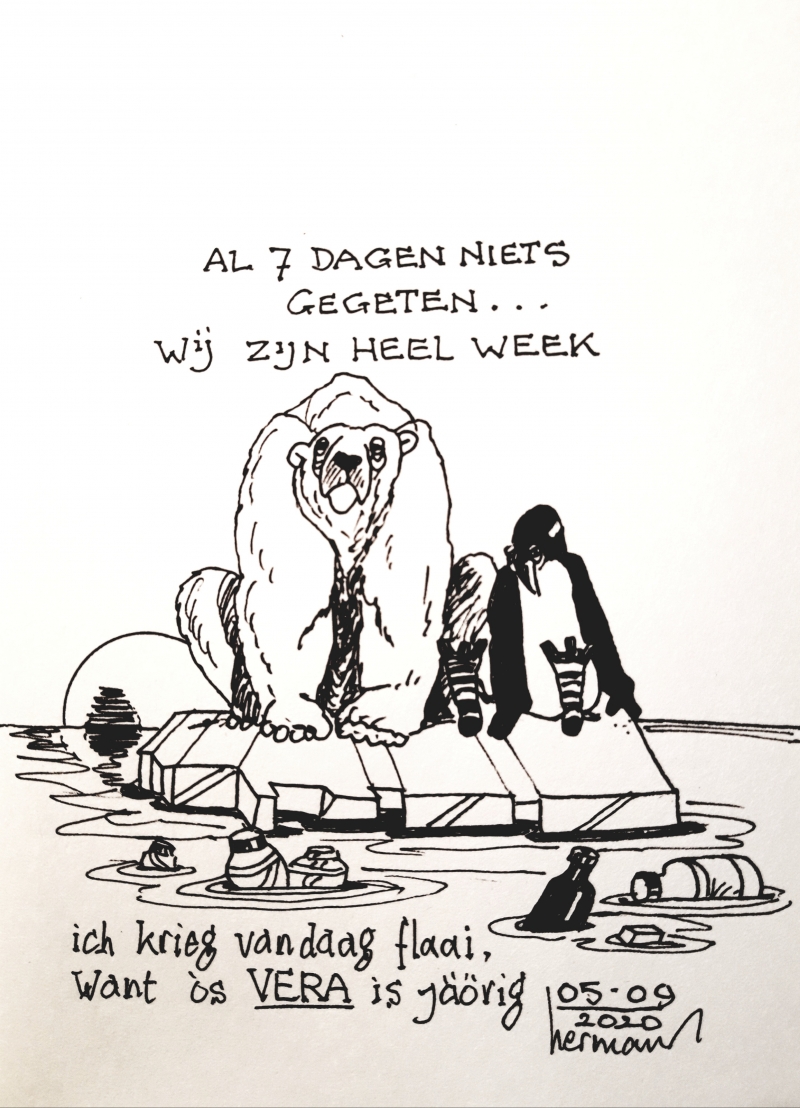 AL 7 DAGEN NIETS
GEGETEN...
Wij ZIJN HEEL WEEK
ich krieg vandaag flaai,
Want òs VERA is jäörig
05-09
2020
herman